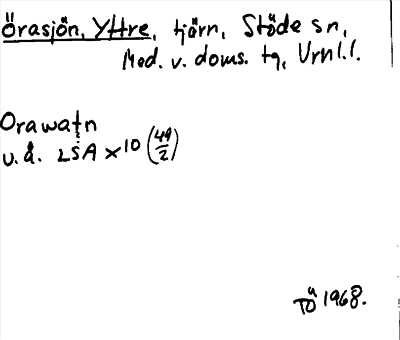 Örasjön, Yttre, tjärn, Stöde sn,
Med. v. doms. tg, Vrnl.l.
Orawatn
u.å. LSA x10 (49/2)
TÖ 1968.